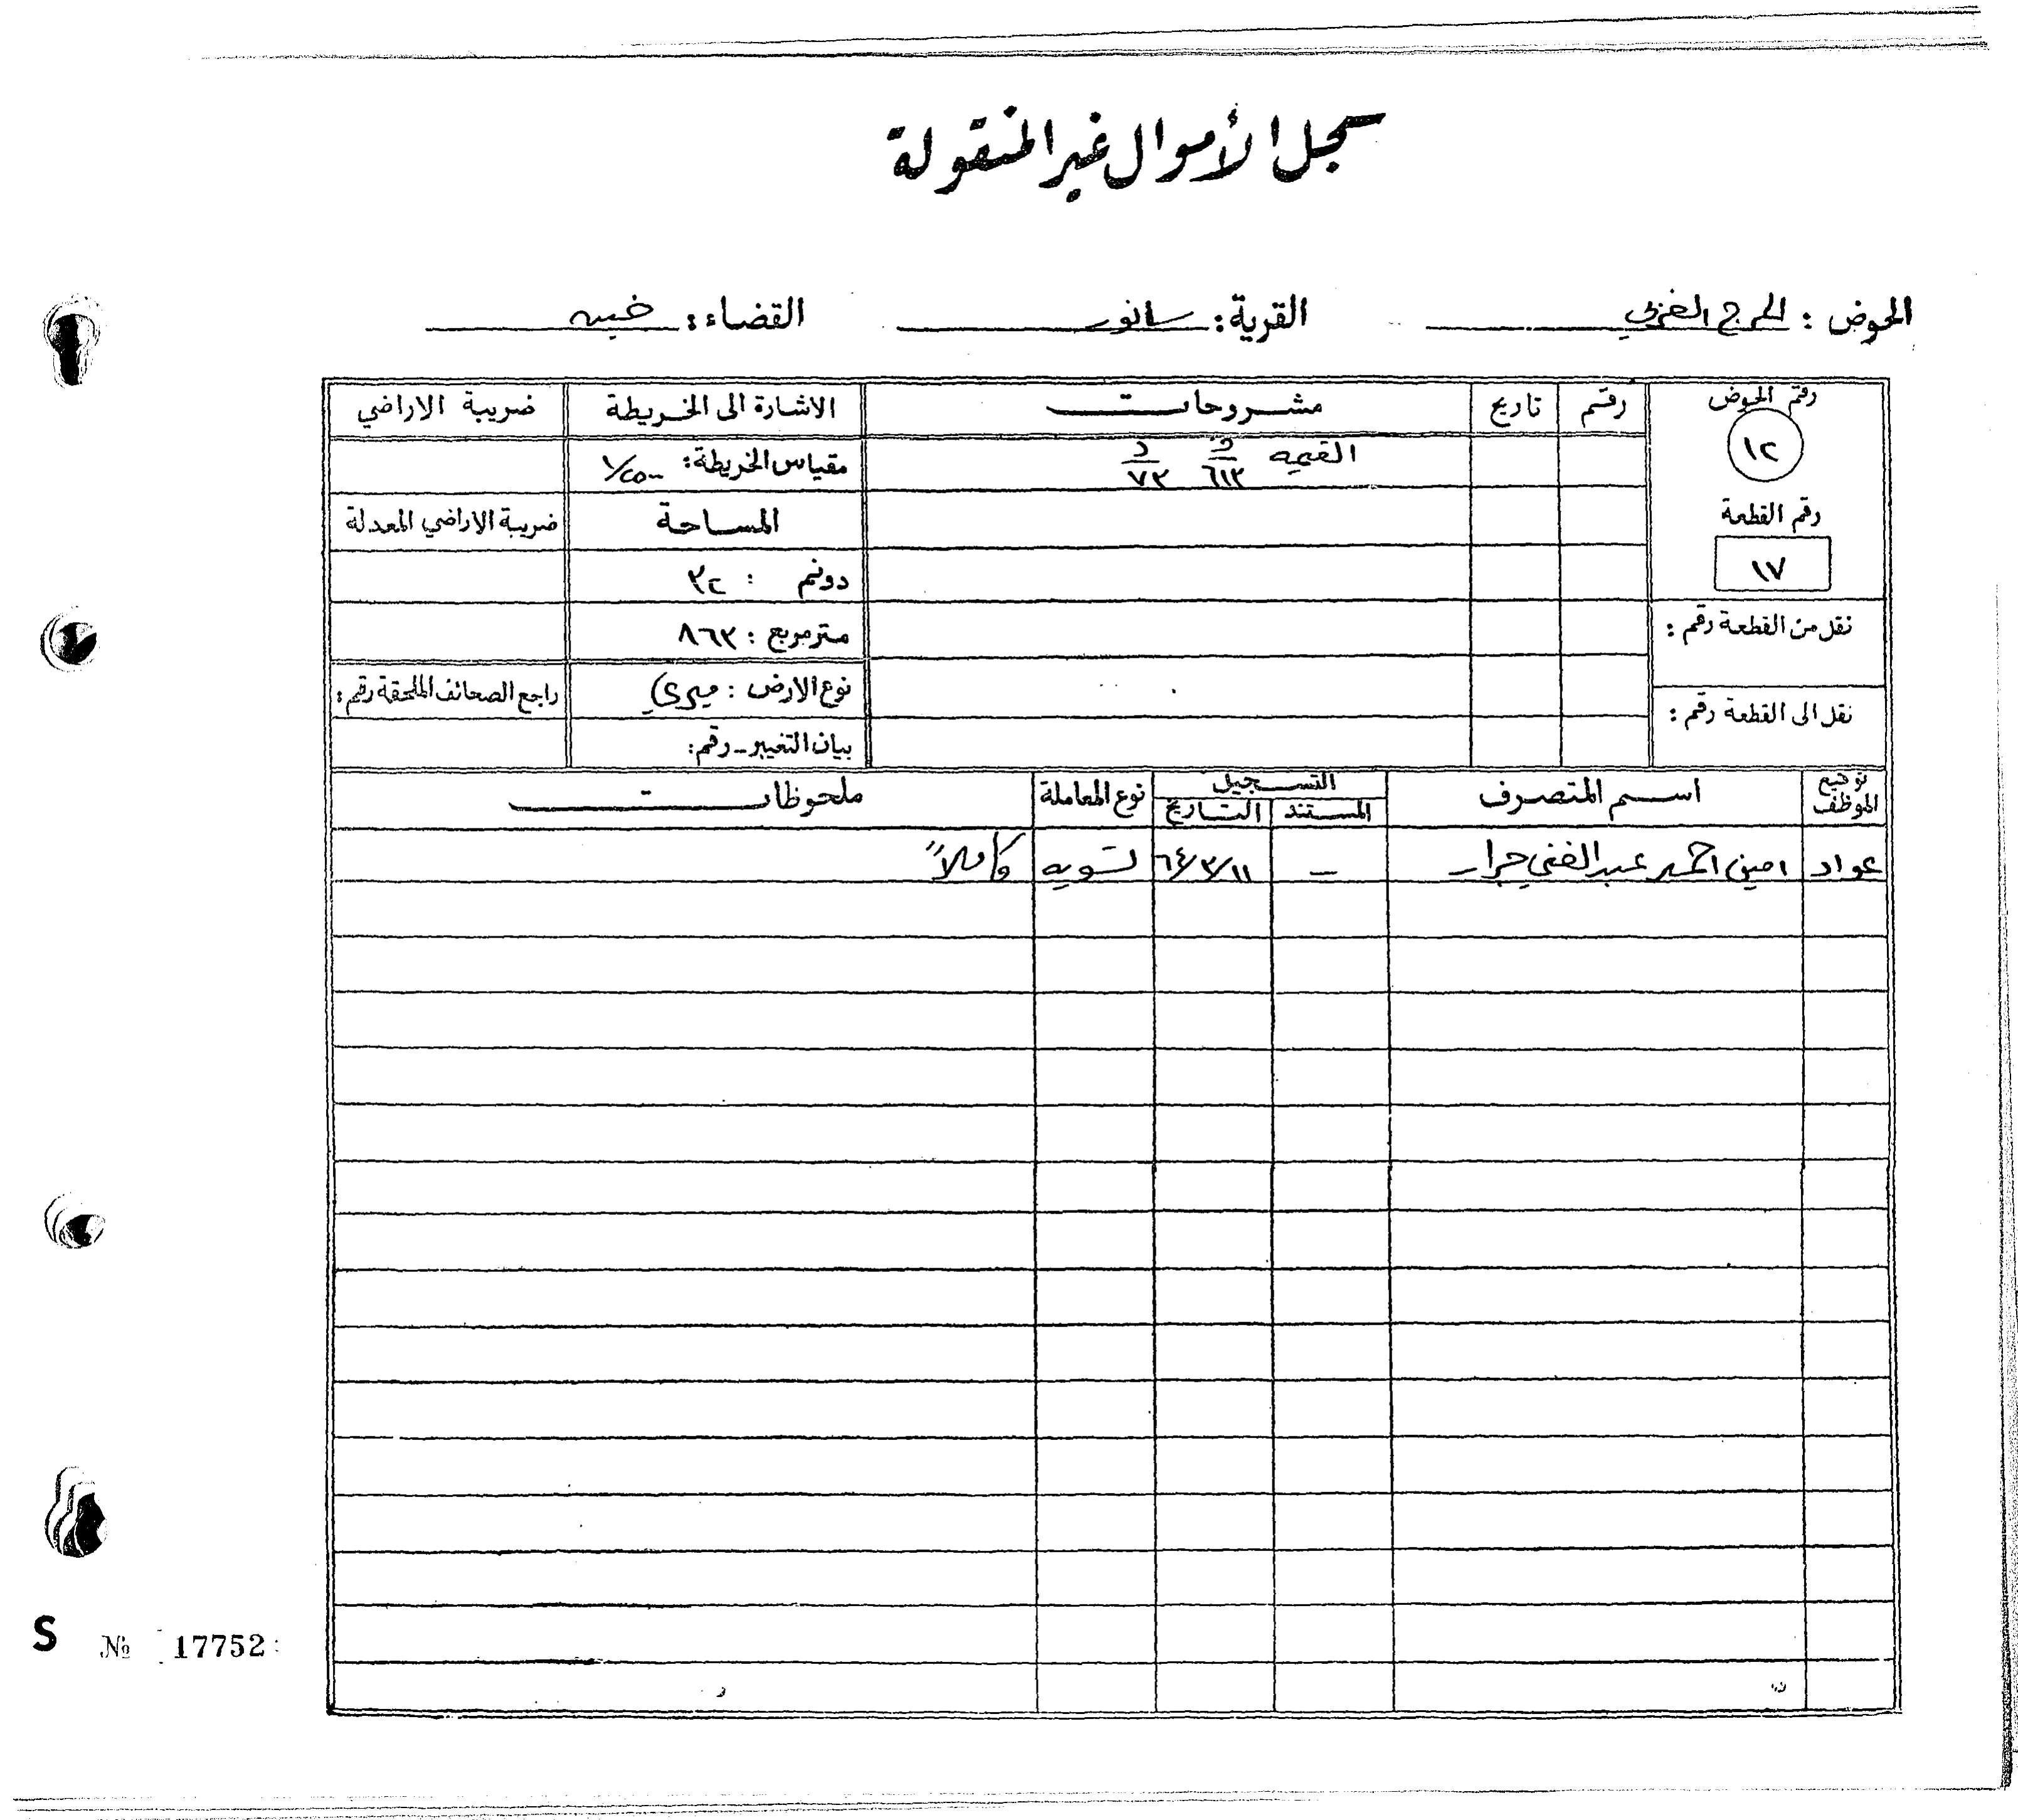 سجل الأموال غير المنقولة
الحوض : المرج الغربي القرية : سانور القضاء : جنين
رقم الحوض رقم تاريخ مشروحات الاشارة الى الخريطة ضريبة الاراضي
١٢ القيمه ف ٦١٣ د ٧٣ مقياس الخريطة : ١/٢٥٠٠
رقم القطعة المساحة ضريبة الاراضي المعدلة
١٧ دونم : ٣٢
نقل من القطعة رقم : متر مربع : ٨٦٣
نوع الارض : ميري راجع الصحائف الملحقة رقم :
نقل الى القطعة رقم : بيان التغيير - رقم :
توقيع الموظف اسم المتصرف التسجيل نوع المعاملة ملحوظات
المستند التاريخ
عواد امين احمد عبد الغني جرار – ٦٤/٣/١١ تسويه كاملاً
S № 17752